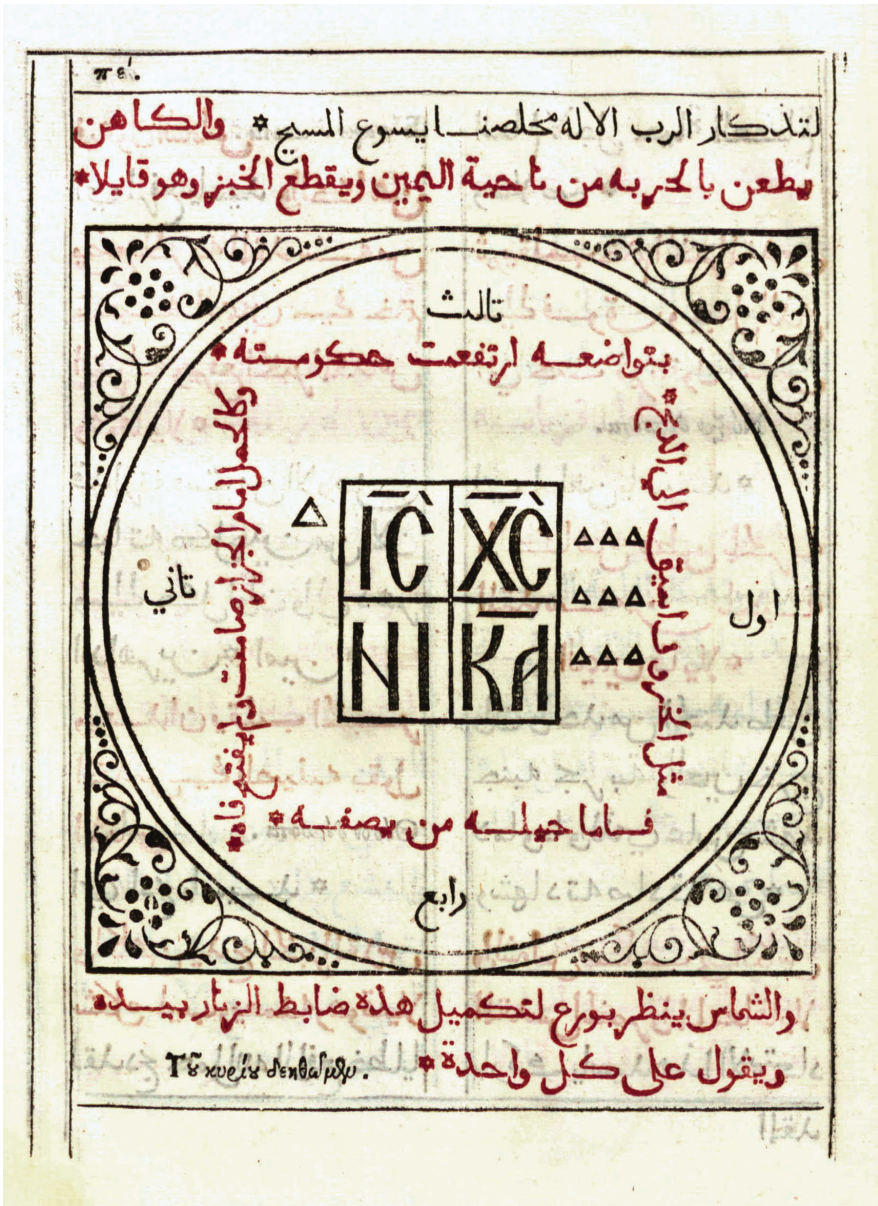 πε´.
لتذكار الرب الاله مخلصنا يسوع المسيح * والكاهن
يطعن بالحربه من ناحية اليمين ويقطع الخبز وهو قايلا*
تالث
بتواضعه ارتفعت حكومته *
اول
مثل الخروف العتيق الى الذبح *
ΙC ΧC
ΝΙ ΚΑ
تاني
وكالحمل امام الجزاز صامت لم يفتح فاه *
فاما جيله من يصفه *
رابع
والشماس ينظر بورع لتكميل هذه ضابط الزنار بيده
ويقول على كل واحدة * Τοῦ κυρίου δεηθῶμεν.